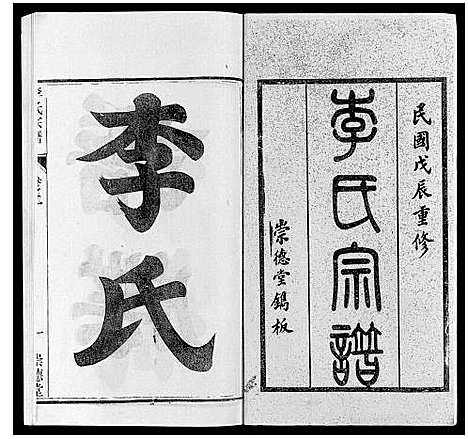 民國戊辰重修
李氏宗譜
崇德堂鐫板
李氏